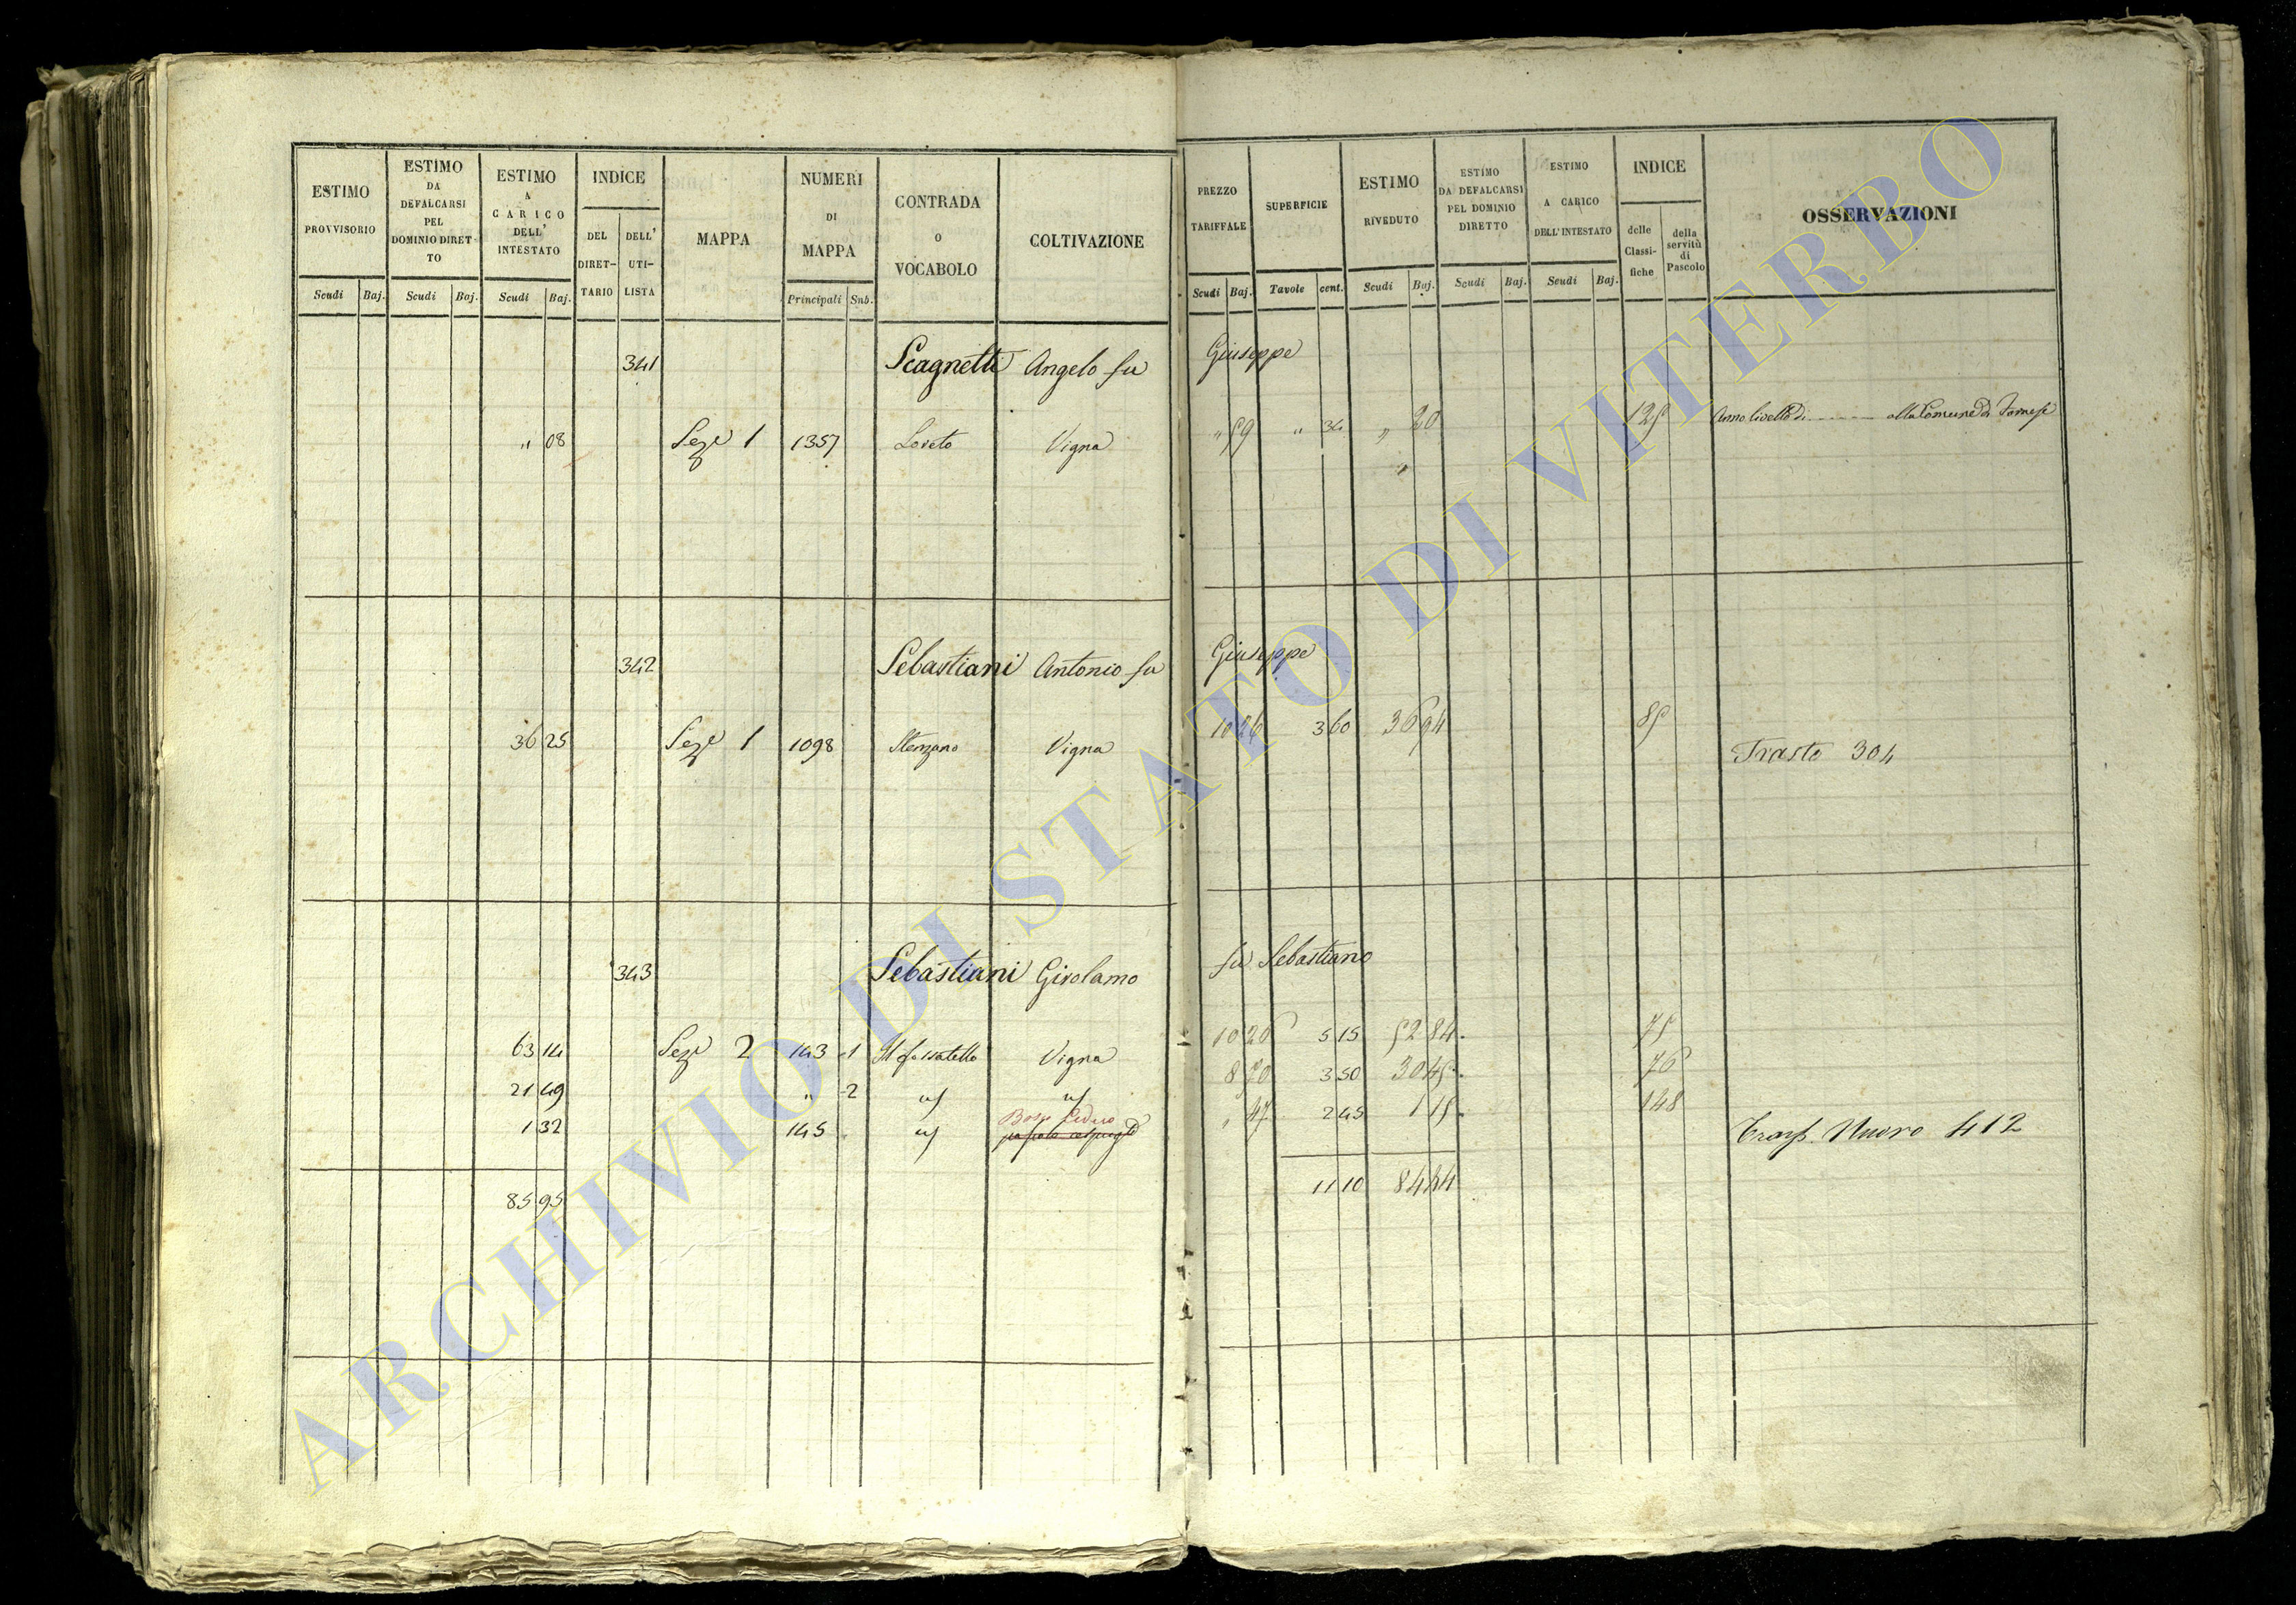 ESTIMO PROVVISORIO
Scudi Baj.
ESTIMO DA DEFALCARSI PEL DOMINIO DIRETTO
Scudi Baj.
ESTIMO A CARICO DELL' INTESTATO
Scudi Baj.
INDICE
DEL DIRETTARIO
DELL' UTILISTA
MAPPA
NUMERI DI MAPPA
Principali Sub.
CONTRADA O VOCABOLO
COLTIVAZIONE
PREZZO TARIFFALE
Scudi Baj.
SUPERFICIE
Tavole cent.
ESTIMO RIVEDUTO
Scudi Baj.
ESTIMO DA DEFALCARSI PEL DOMINIO DIRETTO
Scudi Baj.
ESTIMO A CARICO DELL' INTESTATO
Scudi Baj.
INDICE
delle Classifiche
della servitù di Pascolo
OSSERVAZIONI
341 Scagnetti Angelo fu Giuseppe
" 08 Seze 1 1357 Loreto Vigna " 59 " 34 " 20 125 alla Comune di Farnese
"
342 Sebastiani Antonio fu Giuseppe
36 25 Seze 1 1098 Stenzano Vigna 10 26 3 60 36 94 85
Trasto 304
343 Sebastiani Girolamo fu Sebastiano
63 14 Seze 2 143 1 Il fossatello Vigna 10 26 5 15 52 84 75
21 49 " 2 uf uf 8 70 3 50 30 45 76
1 32 145 uf Bosco Ceduo " 47 2 45 1 15 148
Trasp. Nuovo 412
85 95 11 10 84 44
ARCHIVIO DI STATO DI VITERBO